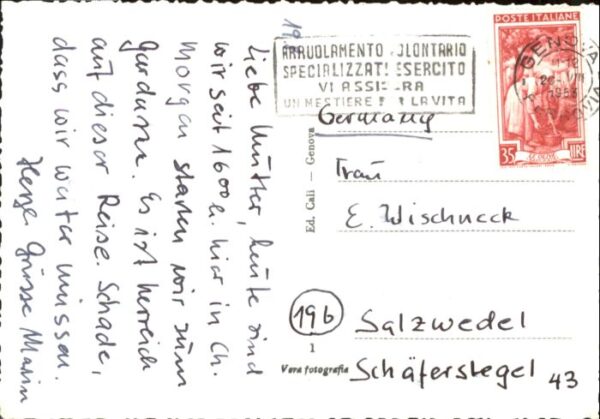 19
Liebe Mutter, heute sind
wir seit 1600 h. hier in Ch.
Morgen starten wir zum
Gardasee. Es ist herrlich
auf dieser Reise. Schade,
dass wir weiter müssen.
Herzl. Grüsse
ARRUOLAMENTO VOLONTARIO
SPECIALIZZATI ESERCITO
VI ASSI RA
UN MESTIERE P R LA VITA
POSTE ITALIANE
GENOVA
1953
FERROVIA
35 LIRE
Germany
Frau
E. Wischneck
19b
Salzwedel
Schäferstegel 43
Ed. Cali - Genova
1
Vera fotografia